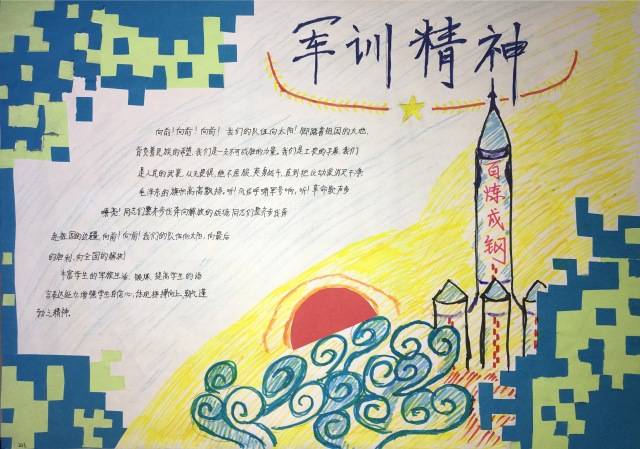 军训精神
向前!向前!向前!我们的队伍向太阳!脚踏着祖国的大地,
背负着民族的希望,我们是一支不可战胜的力量。我们是工农的子弟,我们
是人民的武装,从无畏惧,绝不屈服,英勇战斗,直到把反动派消灭干净
毛泽东的旗帜高高飘扬。听!风在呼啸军号响,听!革命歌声多
嘹亮!同志们整齐步伐奔向解放的战场同志们整齐步伐奔
赴祖国的边疆,向前!向前!我们的队伍向太阳,向最后
的胜利,向全国的解放!
丰富学生的军校生活、锻炼、提高学生的语
言表达能力,增强学生自信心,体现拼搏向上,
精神。
百炼成钢